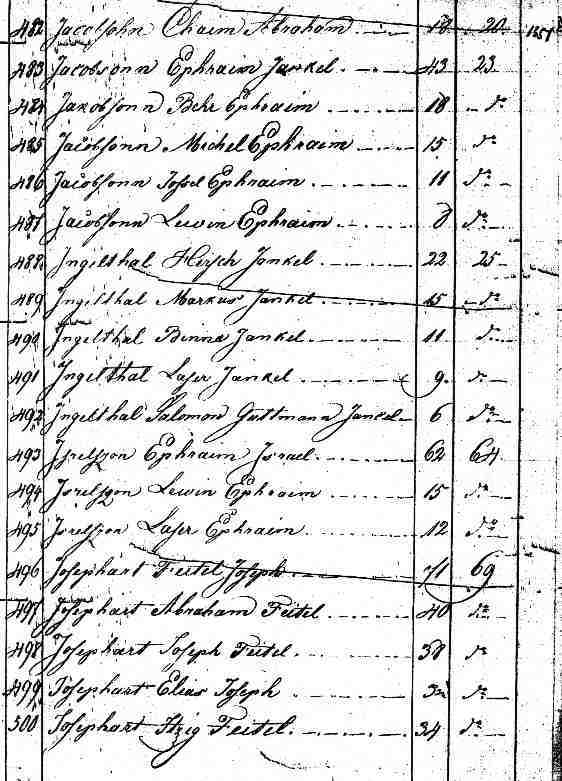 482 Jacobsohn Chaim Abraham 18 20 1851
483 Jacobsonn Ephraim Jankel 43 23
484 Jakobsonn Behr Ephraim 18 do
485 Jacobsonn Michel Ephraim 15 do
486 Jacobsonn Jossel Ephraim 11 do
487 Jacobsonn Lewin Ephraim 8 do
488 Ingelthal Hirsch Jankel 22 25
489 Ingelthal Markus Jankel 15 do
490 Ingelthal Benna Jankel 11 do
491 Ingelthal Laser Jankel 9 do
492 Ingelthal Salomon Guttmann Jankel 6 do
493 Isrelszon Ephraim Israel 62 64
494 Isrelszon Lewin Ephraim 15 do
495 Isrelszon Laser Ephraim 12 do
496 Josephart Feitel Joseph 71 69
497 Josephart Abraham Feitel 40 do
498 Josephart Joseph Feitel 38 do
499 Josephart Elias Joseph do
500 Josephart Itzig Feitel 34 do